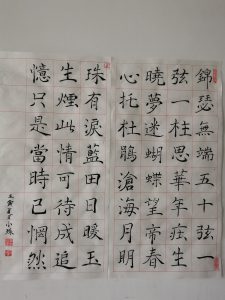 錦瑟無端五十弦一
弦一柱思華年莊生
曉夢迷蝴蝶望帝春
心托杜鵑滄海月明
珠有淚藍田日暖玉
生煙此情可待成追
憶只是當時已惘然
壬寅夏